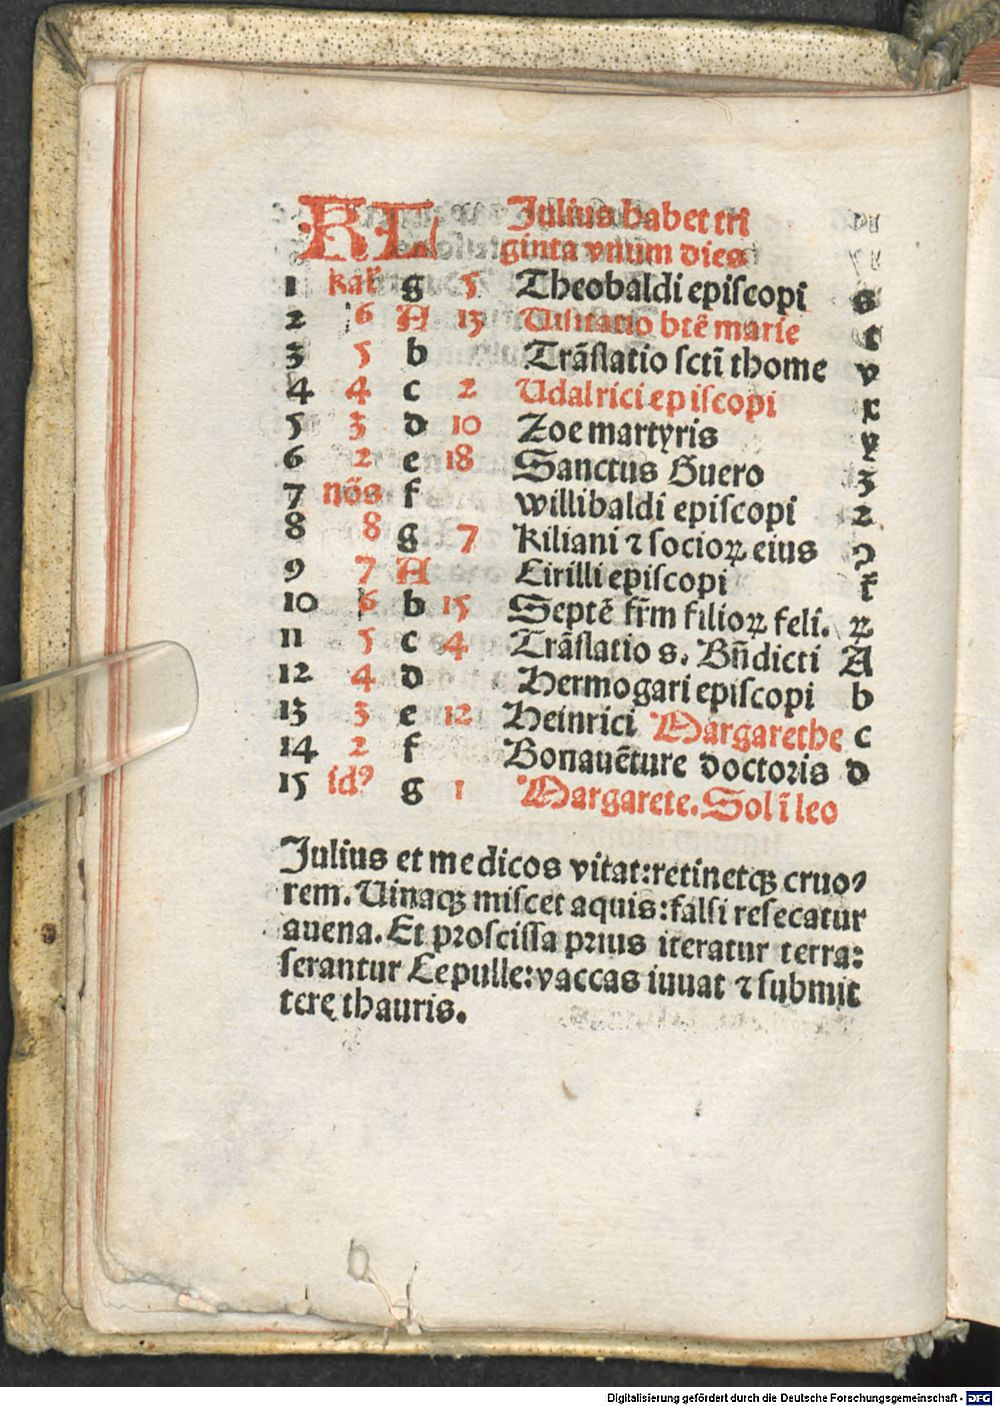 KL Julius habet tri
ginta vnum dies
1 kal̄ g 5 Theobaldi episcopi s
2 6 A 13 Uisitatio btē marie t
3 5 b Trāslatio sctī thome v
4 4 c 2 Udalrici episcopi x
5 3 d 10 Zoe martyris y
6 2 e 18 Sanctus Guero z
7 nōs f willibaldi episcopi 2
8 8 g 7 Kiliani ⁊ socioꝝ eius ꝯ
9 7 A Cirilli episcopi
10 6 b 15 Septē fr̄m filioꝝ feli. ꝝ
11 5 c 4 Trāslatio s. Bn̄dicti A
12 4 d Hermogari episcopi b
13 3 e 12 Heinrici Margarethe c
14 2 f Bonauēture doctoris d
15 idꝰ g 1 Margarete. Sol ī leo
Julius et medicos vitat:retinetqꝫ cruo⸗
rem. Uinaqꝫ miscet aquis:falsi resecatur
auena. Et proscissa prius iteratur terra:
serantur Cepulle:vaccas iuuat ⁊ submit
tere thauris.
Digitalisierung gefördert durch die Deutsche Forschungsgemeinschaft - DFG